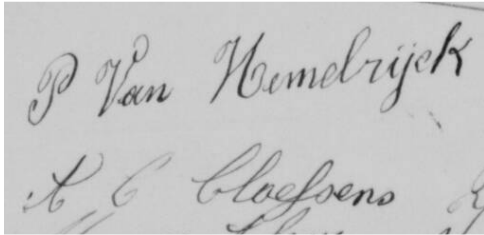 P Van Hemelrijck
A C Claessens